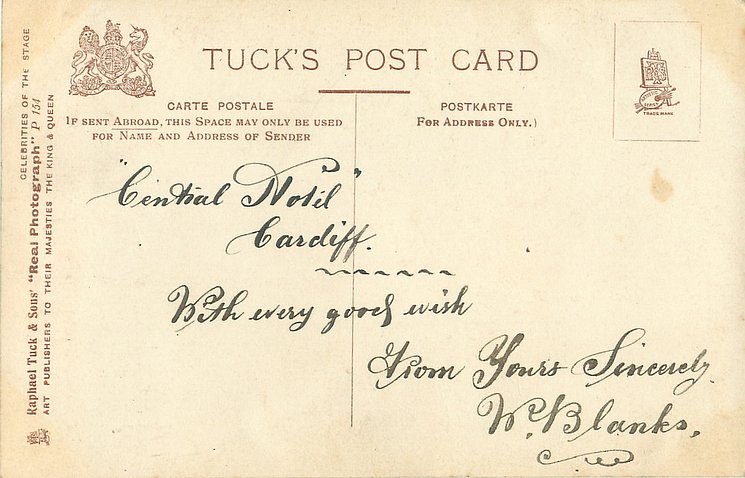 TUCK'S POST CARD
CARTE POSTALE
IF SENT ABROAD, THIS SPACE MAY ONLY BE USED
FOR NAME AND ADDRESS OF SENDER
POSTKARTE
FOR ADDRESS ONLY.)
TRADE MARK
CELEBRITIES OF THE STAGE
Raphael Tuck & Sons' "Real Photograph" P 154
ART PUBLISHERS TO THEIR MAJESTIES THE KING & QUEEN
"Central Hotel"
Cardiff.
With every good wish
From Yours Sincerely
W. Blanks.